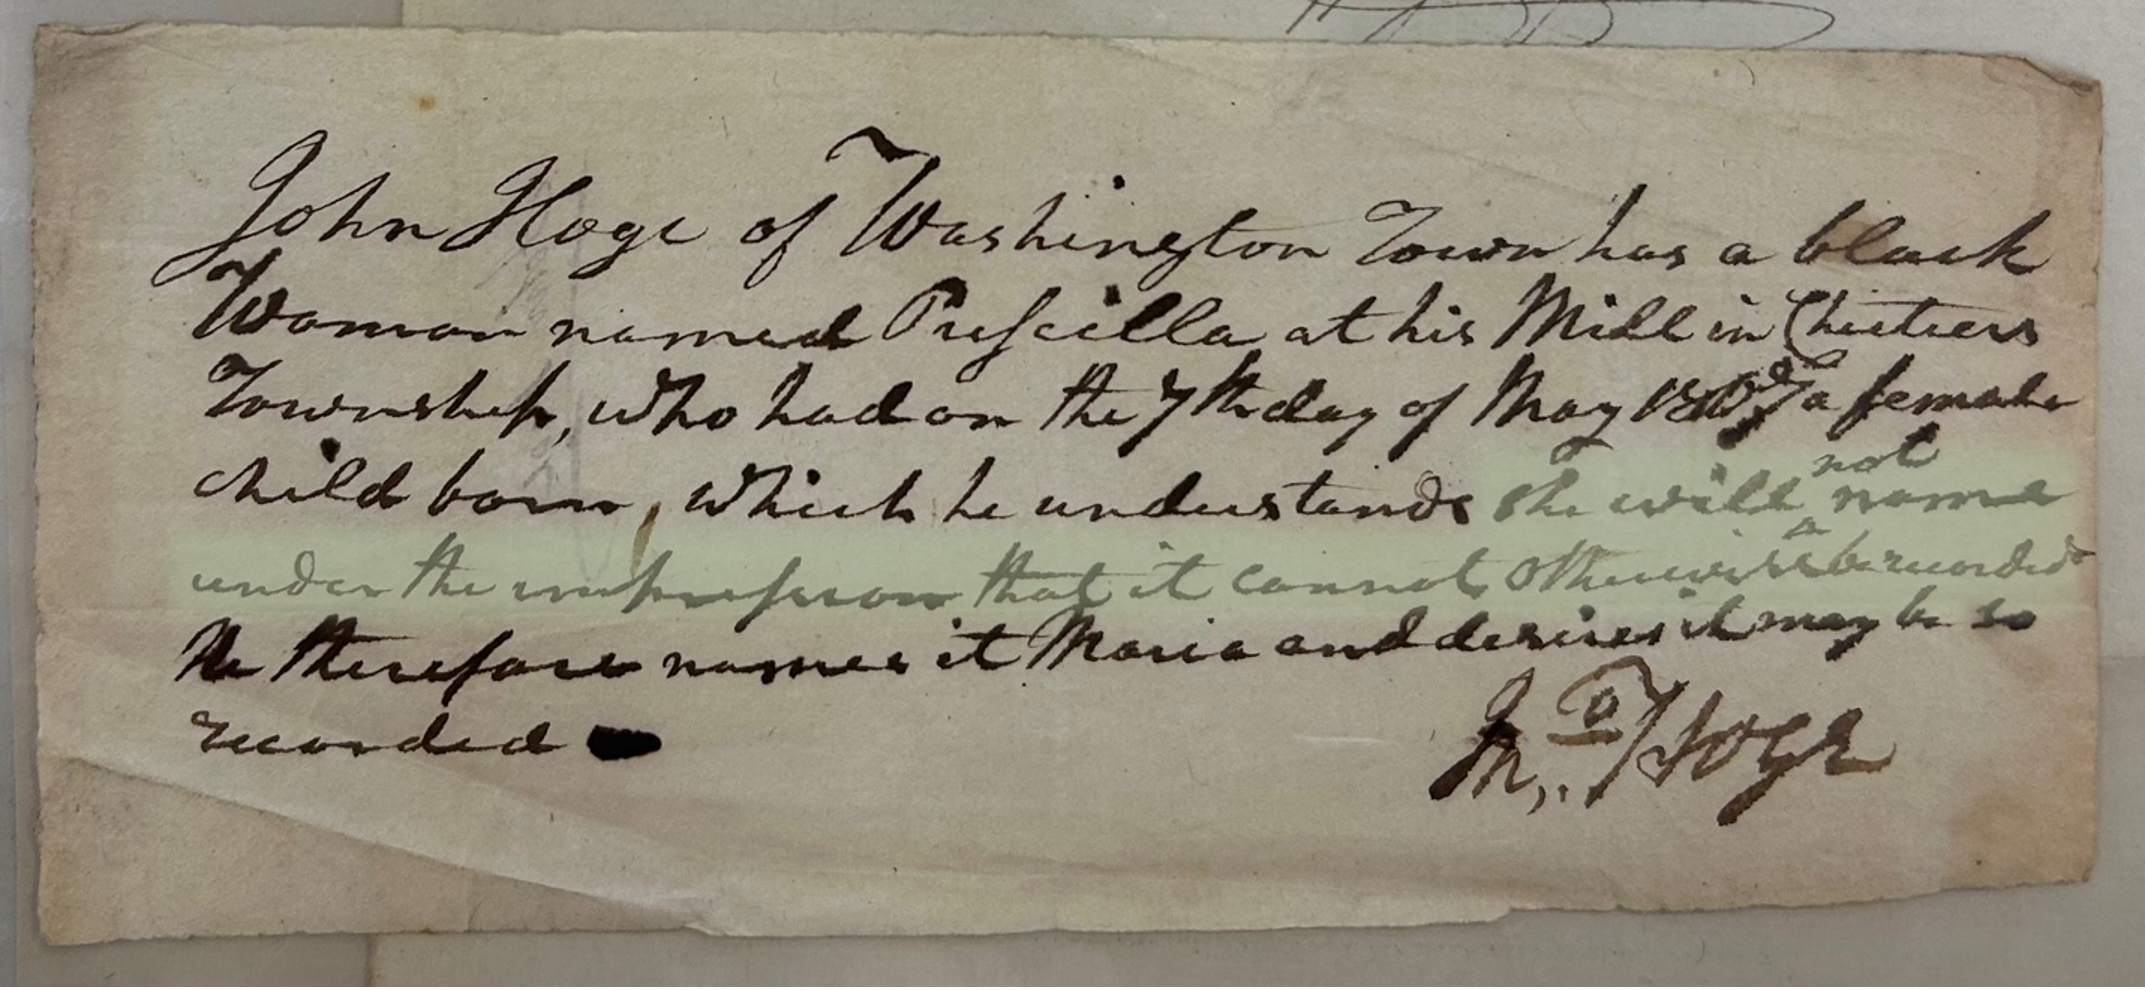 John Hoge of Washington Town has a black
Woman named Prescilla at his Mill in Chartiers
Township, who had on the 7th day of May 1807 a female
child born, which he understands she will not name
under the impression that it cannot otherwise be recorded
He therefore names it Maria and desires it may be so
recorded
Jno. Hoge